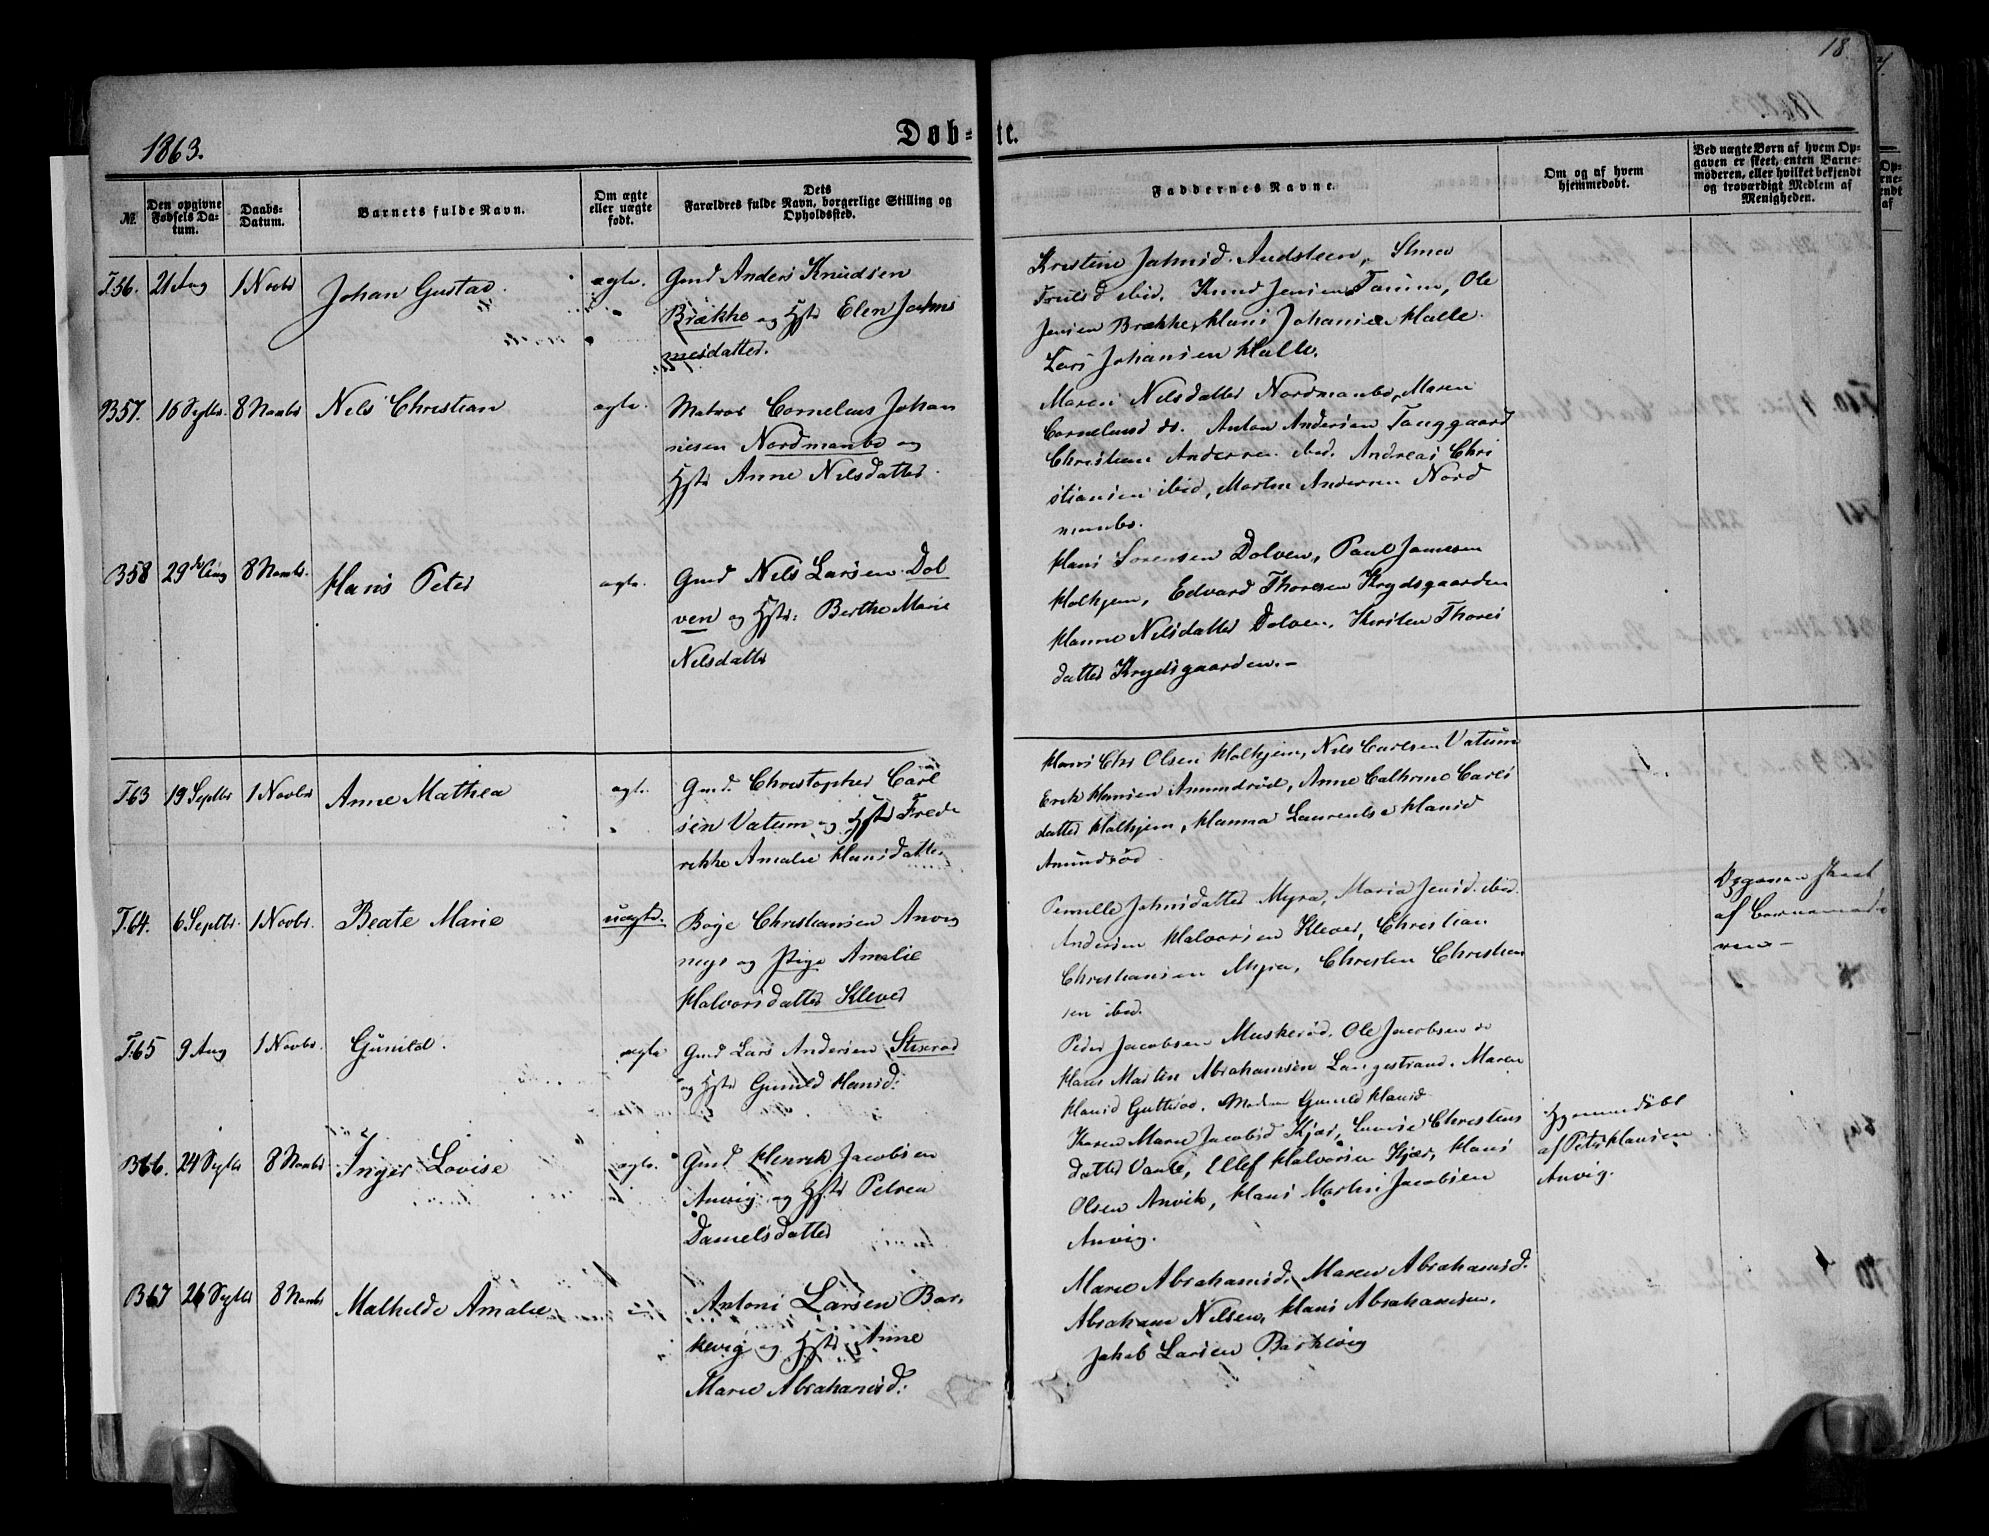 18
1863.
Døb=te.
№
Den opgivne Fødsels Datum.
Daabs-Datum.
Barnets fulde Navn.
Om ægte eller uægte født.
Dets Forældres fulde Navn, borgerlige Stilling og Opholdssted.
Faddernes Navne.
Om og af hvem hjemmedøbt.
Ved uægte Børn af hvem Opgaven er skeet, enten Barnemoderen, eller hvilket bekjendt og troværdigt Medlem af Menigheden.
T.56. 21 Aug 1 Novbr Johan Gustav. ægte. Gmd Anders Knudsen
Brække og Hstr Elen Johan
nesdatter.
Kristine Johnsd. Audsteen,
Trulsd ibid. Knud Jensen Farum, Ole
Jensen Brække, Hans Johansen Halle.
Lars Johansen Halle.
B57. 16 Septbr. 8 Novbr Nils Christian ægte. Matros Cornelius Johan
nesen Nordmanbo og
Hstr Anne Nilsdatter.
Maren Nilsdatter Nordmanbo, Maren
Corneliusd do. Anton Andersen Tanggaard
Christian Andersen ibid. Andreas Chri
stiansen ibid, Martin Andersen Nord
manbo.
B58 29de Aug 8 Novbr. Hans Peter ægte. Gmd Nils Larsen Dol
ven og Hstr: Berthe Marie
Nilsdatter
Hans Sørensen Dolven, Paul Jansen
Holhjem, Edvard Thoresen Krydsgaarden
Hanne Nilsdatter Dolven, Kirsten Thores
datter Krydsgaarden.-
T.63 19 Septbr 1 Novbr Anne Mathea ægte. Gmd. Christopher Carl
sen Vatum og Hstr Frede
rikke Amalie Hansdatter
Hans Chr Olsen Holhjem, Nils Carlsen Vatum
Erik Hansen Amundrød, Anne Cathrine Carls
datter Holhjem, Hanna Laurentse Hansd
Amundrød
T.64. 6 Septbr. 1 Novbr. Beate Marie uægte. Boye Christiansen Anvig
og Pige Amalie
Halvorsdatter Klever
Pernille Johnsdatter Myra, Maria Jensd. ibid.
Andersen Halvorsen Klever, Christian
Christiansen Myra, Christen Christian
sen ibid.
Opgaven skeet
af Barnemode
ren-
T.65 9 Aug 1 Novbr. Gunild. ægte Gmd Lars Andersen
og Hstr Gunild Hansd:
Peder Jacobsen Muskerød. Ole Jacobsen do
Hans Martin Abrahamsen Langestrand. Maren
Hansd Gutterød. Madam Gunild Hansd
B66. 24 Septbr 8 Novbr Inger Lovise ægte. Gmd Henrik Jacobsen
Anvig og Hstr Petrea
Danielsdatter
Karen Marie Jacobsd Kjær, Lovise Christens
datter Vante, Ellef Halvorsen Kjær, Hans
Olsen Anvik, Hans Martin Jacobsen
Anvig.
Hjemmedøbt
af Petr Hansen
Anvig.
B67 26 Septbr 8 Novbr Mathilde Amalie Antoni Larsen Bar
kevig og Hstr Anne
Marie Abrahamsd:
Maren Abrahamsd. Maren Abrahamsd.
Abraham Nilsen, Hans Abrahamsen.
Jakob Larsen Barkevig